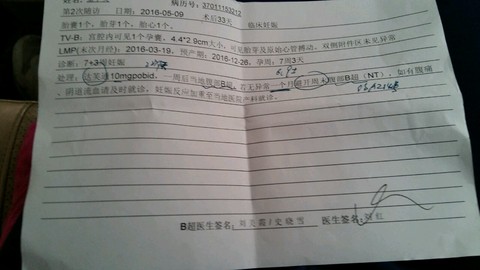 病历号: 37011153212
第2次随访 日期: 2016-05-09 术后33天 临床妊娠
胎囊1个, 胎芽1个, 胎心1个,
TV-B: 宫腔内可见1个孕囊, 4.4*2.9cm大小, 可见胎芽及原始心管搏动, 双侧附件区未见异常
LMP(末次月经): 2016-03-19, 预产期: 2016-12-26, 孕周: 7周3天
诊断: 7+3周妊娠
处理: 达芙通10mgpobid, 一周后当地腹部B超, 若无异常 一个月 周末腹部B超 (NT), 如有腹痛
、阴道流血请及时就诊, 妊娠反应加重至当地医院产科就诊。
B超医生签名: 医生签名: